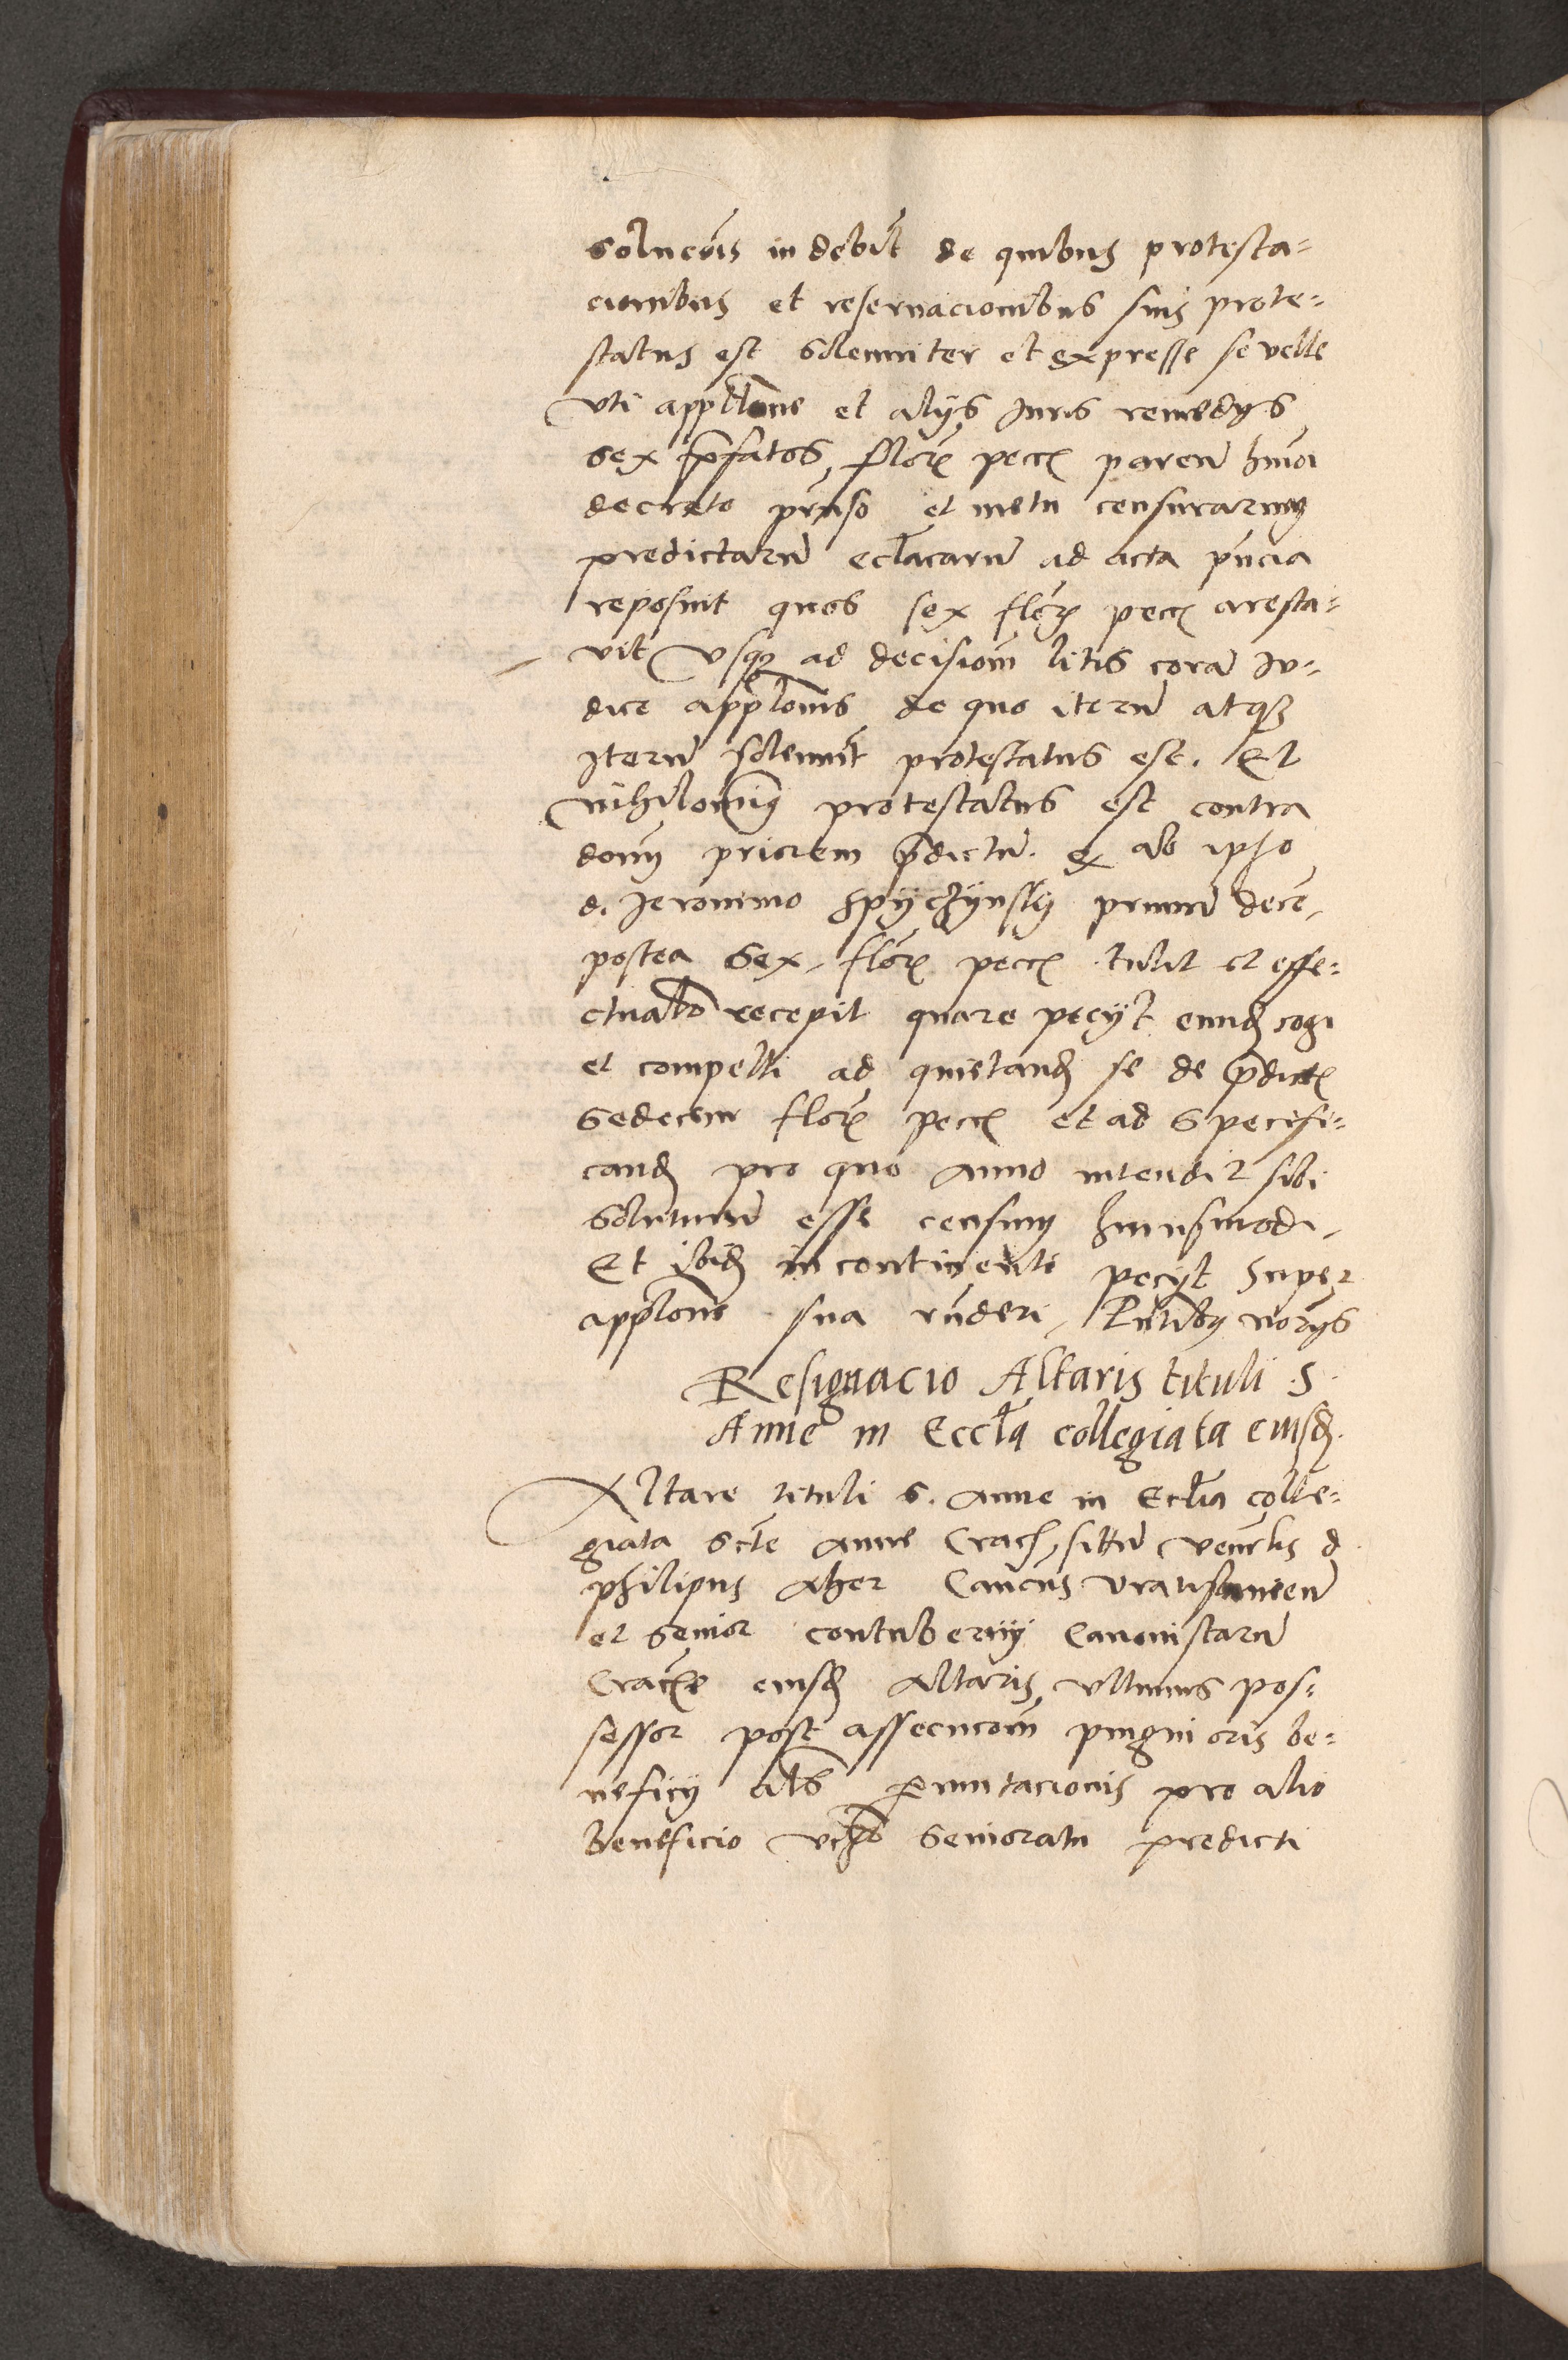 solucõis indebit̃ de quibus protesta=
cionibus et reseruacionibus suis prote=
status est solenniter et expresse se velle
vti appllõne et alijs Iuris remedijs
sex p̃fatos florẽ pecc̃ parenđ hmõi
decreto prmisso et metu censurarum
predictarũ eccl̃iacarũ ad acta p̃ncia
reposuit quos sex florẽ pecc̃ aresta=
uit vsq3 ad decisiom̃ litis corã Iu=
dice applõnis de quo iterũ atq3
Iterũ solennit̃ protestatus est. Et
nihilomĩ9 protestatus est contra
dom̃ priorem p̃dictũ. ex ab ipso
d. Ieronimo Spyczynsky primũ decẽ
postea sex florẽ pecc̃ tulit et effe=
ctualr̃ recepit quare pecijt eund̃ cogi
et compelli ad quietand̃ se de p̃dict̃
sedecem florẽ pecc̃ et ad specifi=
cand̃ pro quo anno intendit sibi
solutum esse censum huiusmodi
Et ibid̃ in continenti pecijt super
applõne sua rñderi, Pñtib9 notãijs
Resignacio Altaris tituli S.
Anne in Eccl̃a collegiata eiusd̃.
Altare tituli s. Anne in Eccl̃ia colle=
giata sctẽ Anne Crac̃ situ̅ veñrlis d
philipus Cancus Vratislauieñ
et senior contubernij Canonistarũ
Cracoẽ eiusd̃ Altaris vltimus pos=
sessor post assecucom̃ pinguioris be=
neficij als̃ permutacionis pro alio
beneficio senioratu predicti